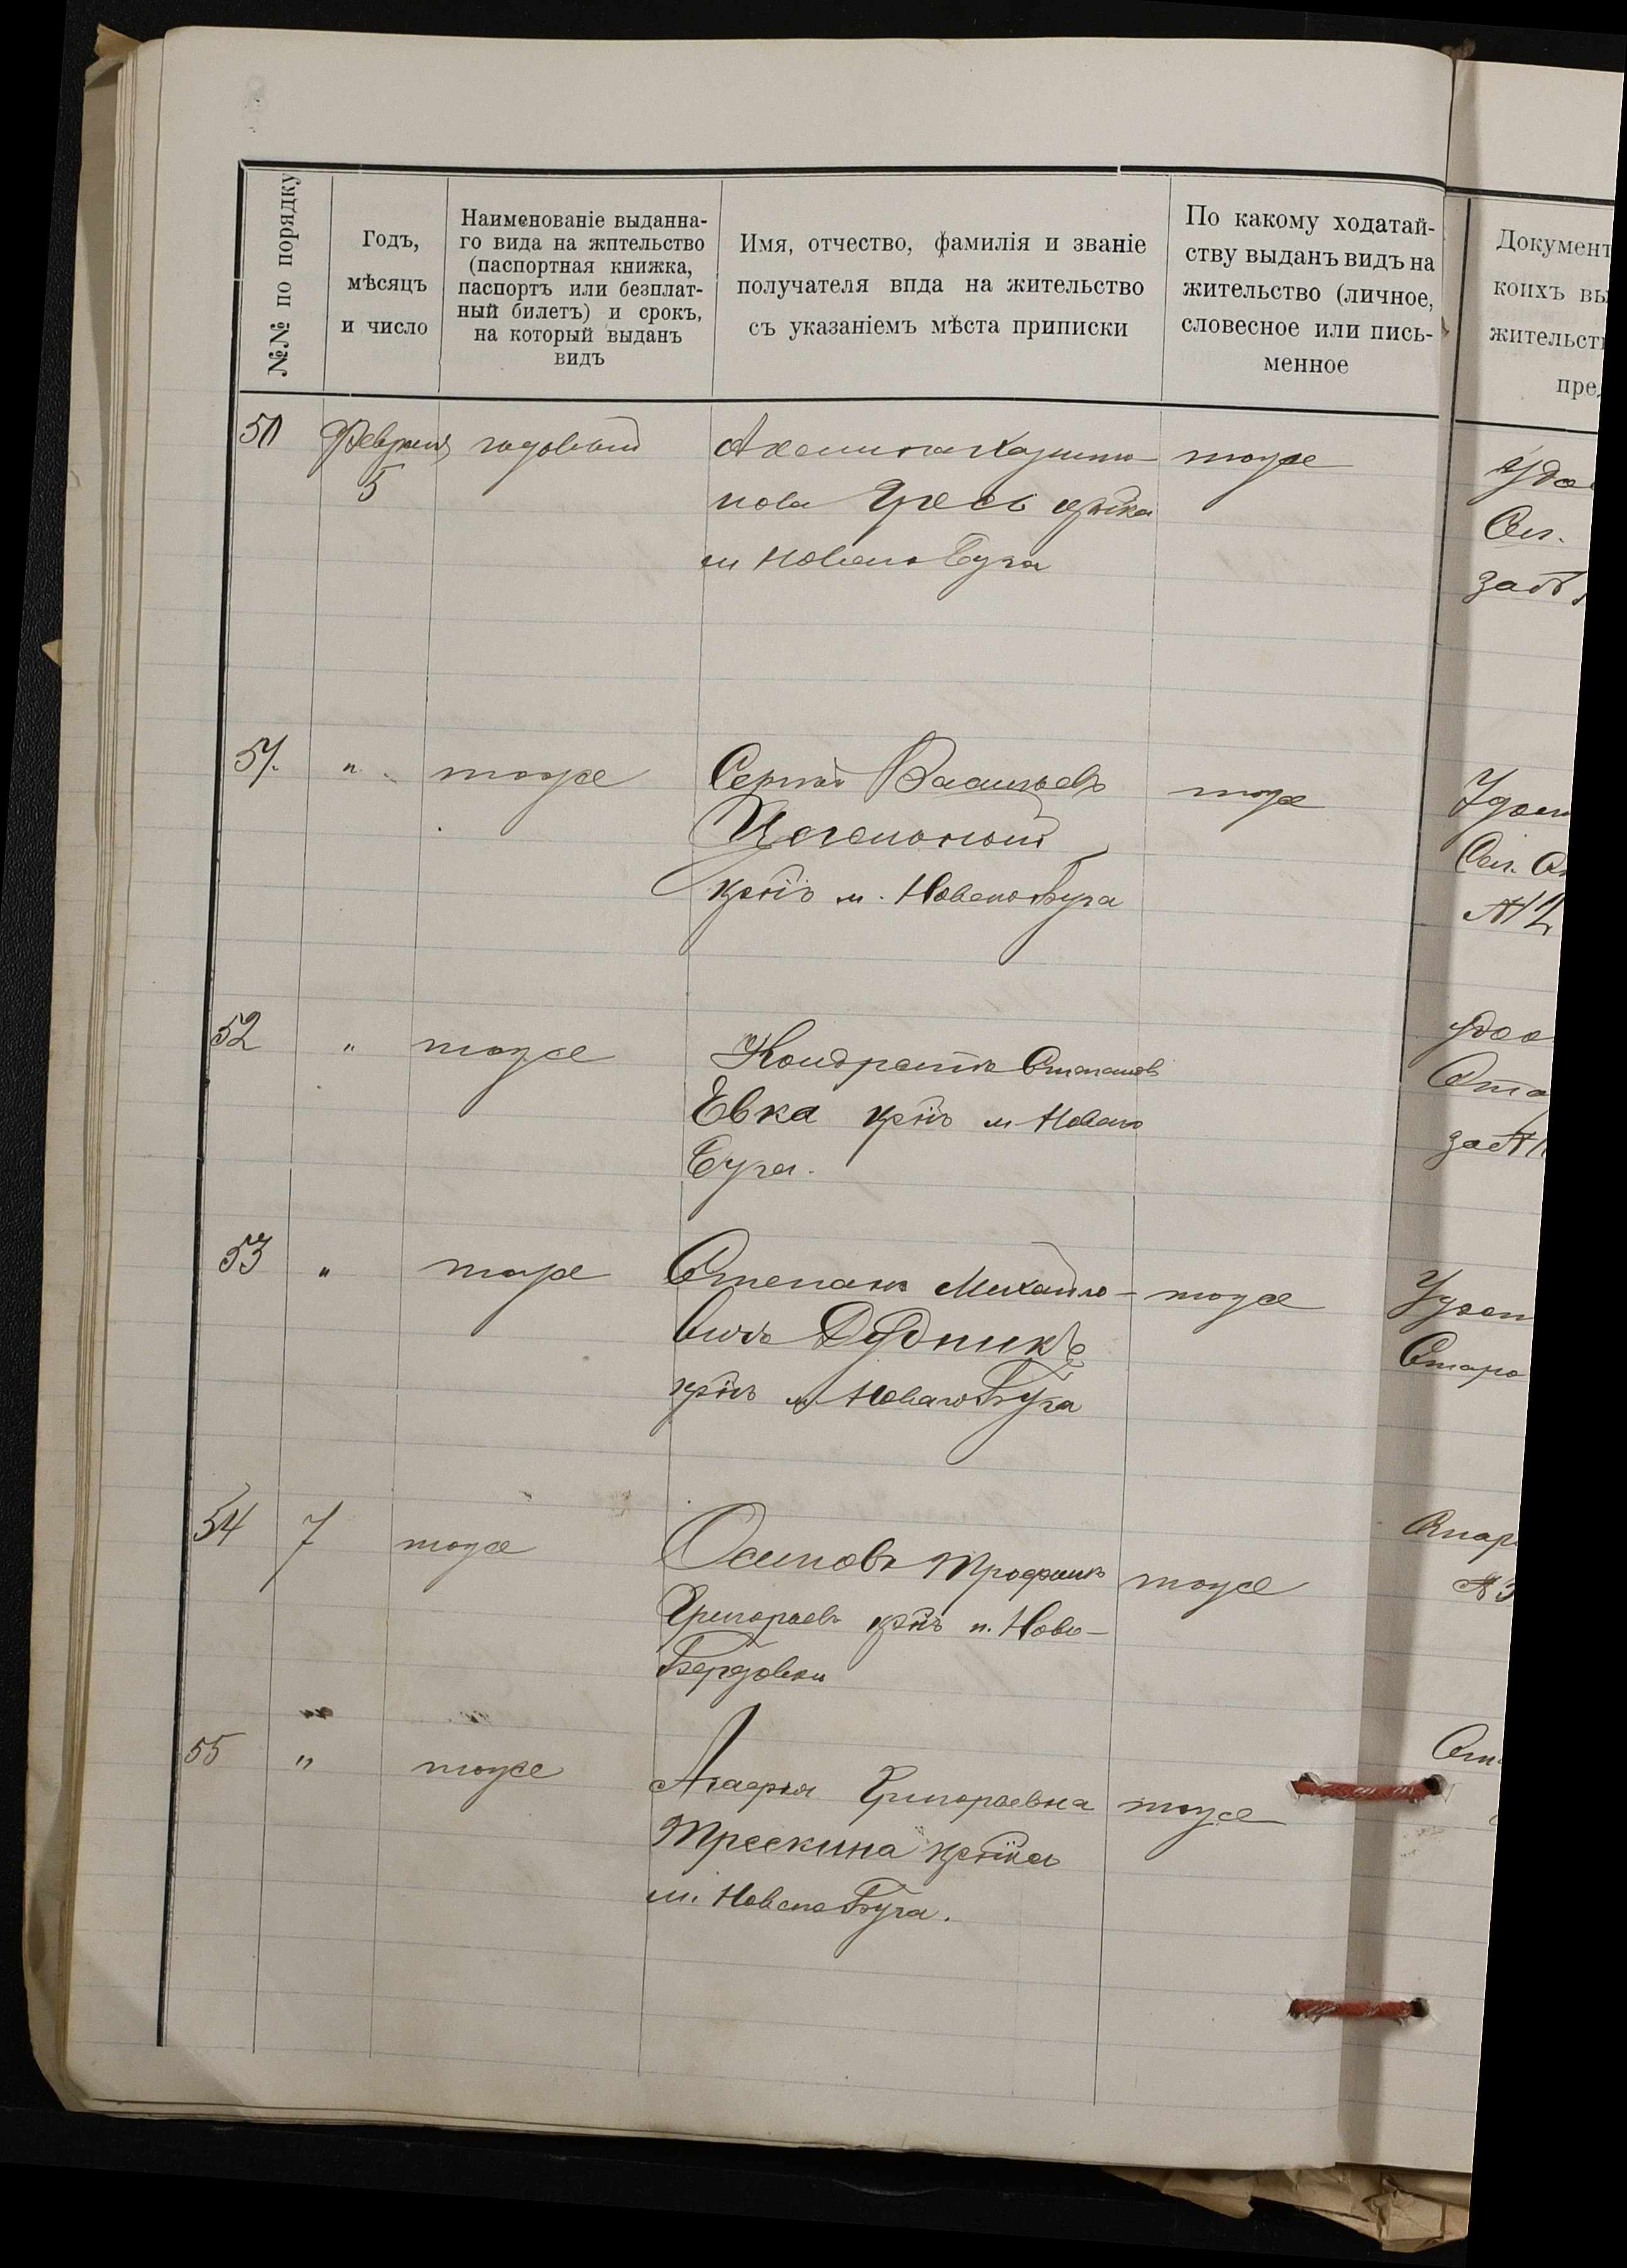 №№ по порядку
Годъ,
мѣсяцъ
и число
Наименованіе выданна-
го вида на жительство
(паспортная книжка,
паспортъ или безплат-
ный билетъ) и срокъ,
на который выданъ
видъ
Имя, отчество, фамилія и званіе
получателя вида на жительство
съ указаніемъ мѣста приписки
По какому ходатай-
ству выданъ видъ на
жительство (личное,
словесное или пись-
менное
Документ
коихъ вы
жительст
пред
50 Февраля годовый тоже
5 нова Гресь
м Новаго Буга
51. " тоже Сергѣй Васильевъ тоже
крнъ м. Новаго Буга
52 " тоже Кондратъ Степановъ
Евка крнъ м Новаго
Буга.
53 " тоже Степанъ Михайло- тоже
вичъ Дудникъ
крнъ м Новаго Буга
54 7 тоже Осиповъ Трофимъ тоже
Григорьевъ крнъ п. Ново-
55 " тоже Агафья Григорьевна тоже
крнка
м. Новаго Буга.